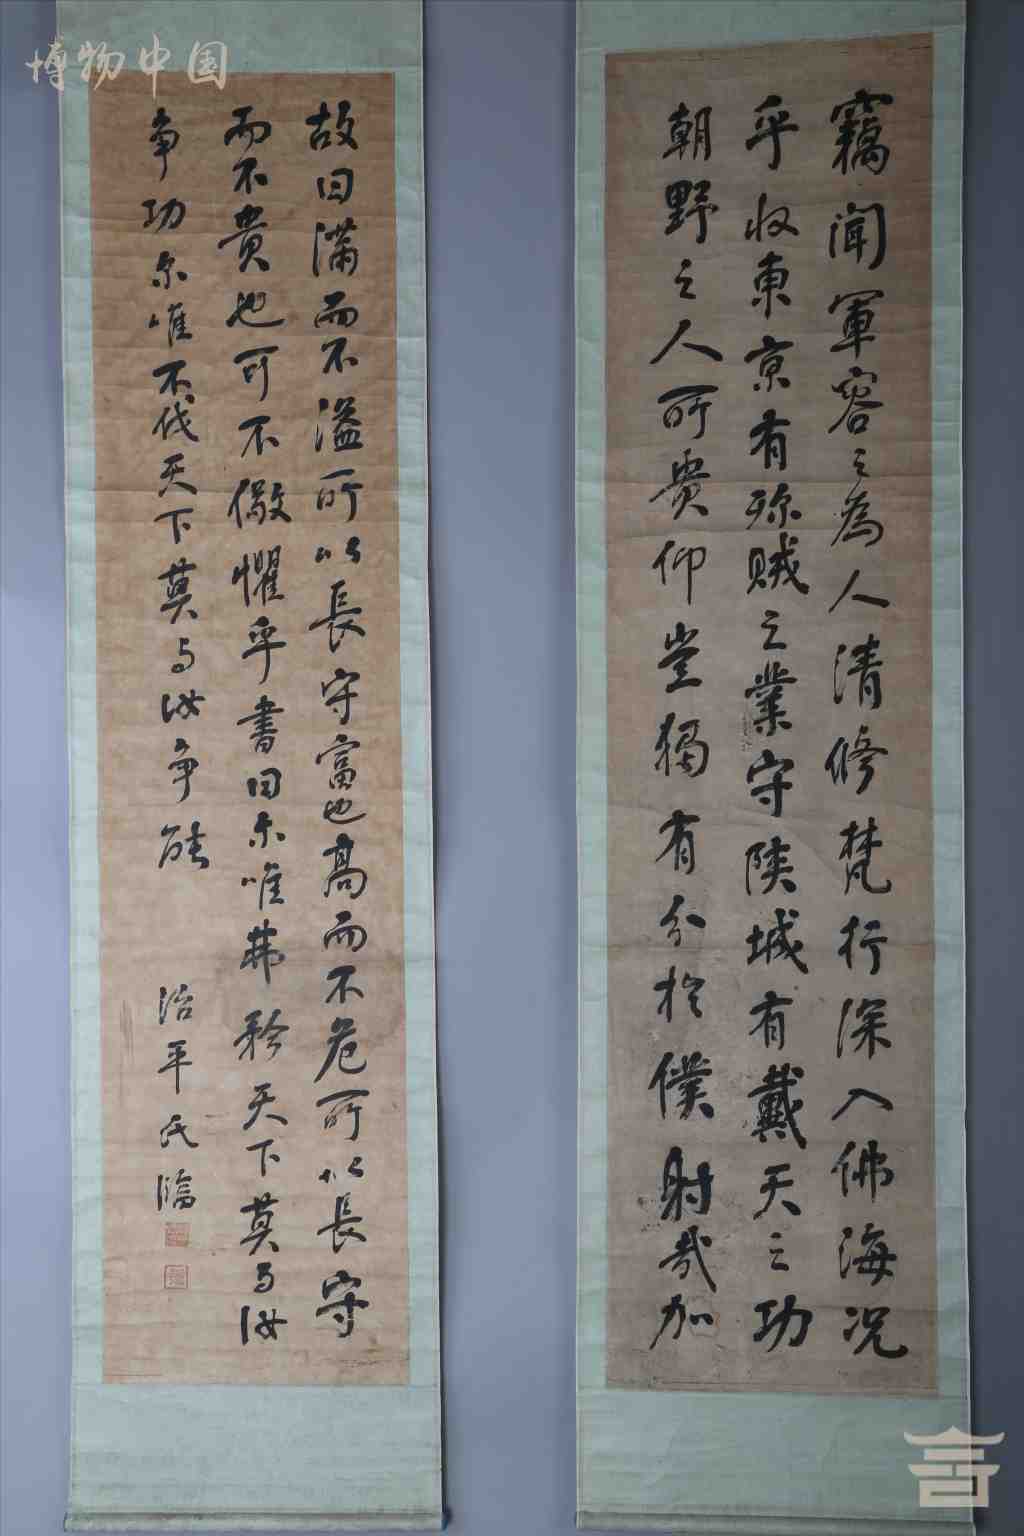 博物中国
竊聞軍容之為人清修梵行深入佛海况
乎收東京有殄賊之業守陝城有戴天之功
朝野之人所貴仰豈獨有分於僕射哉加
故曰滿而不溢所以長守富也高而不危所以長守
而不貴也可不儆懼乎書曰尔唯弗矜天下莫与汝
争功尔唯不伐天下莫与汝争能
治平氏臨